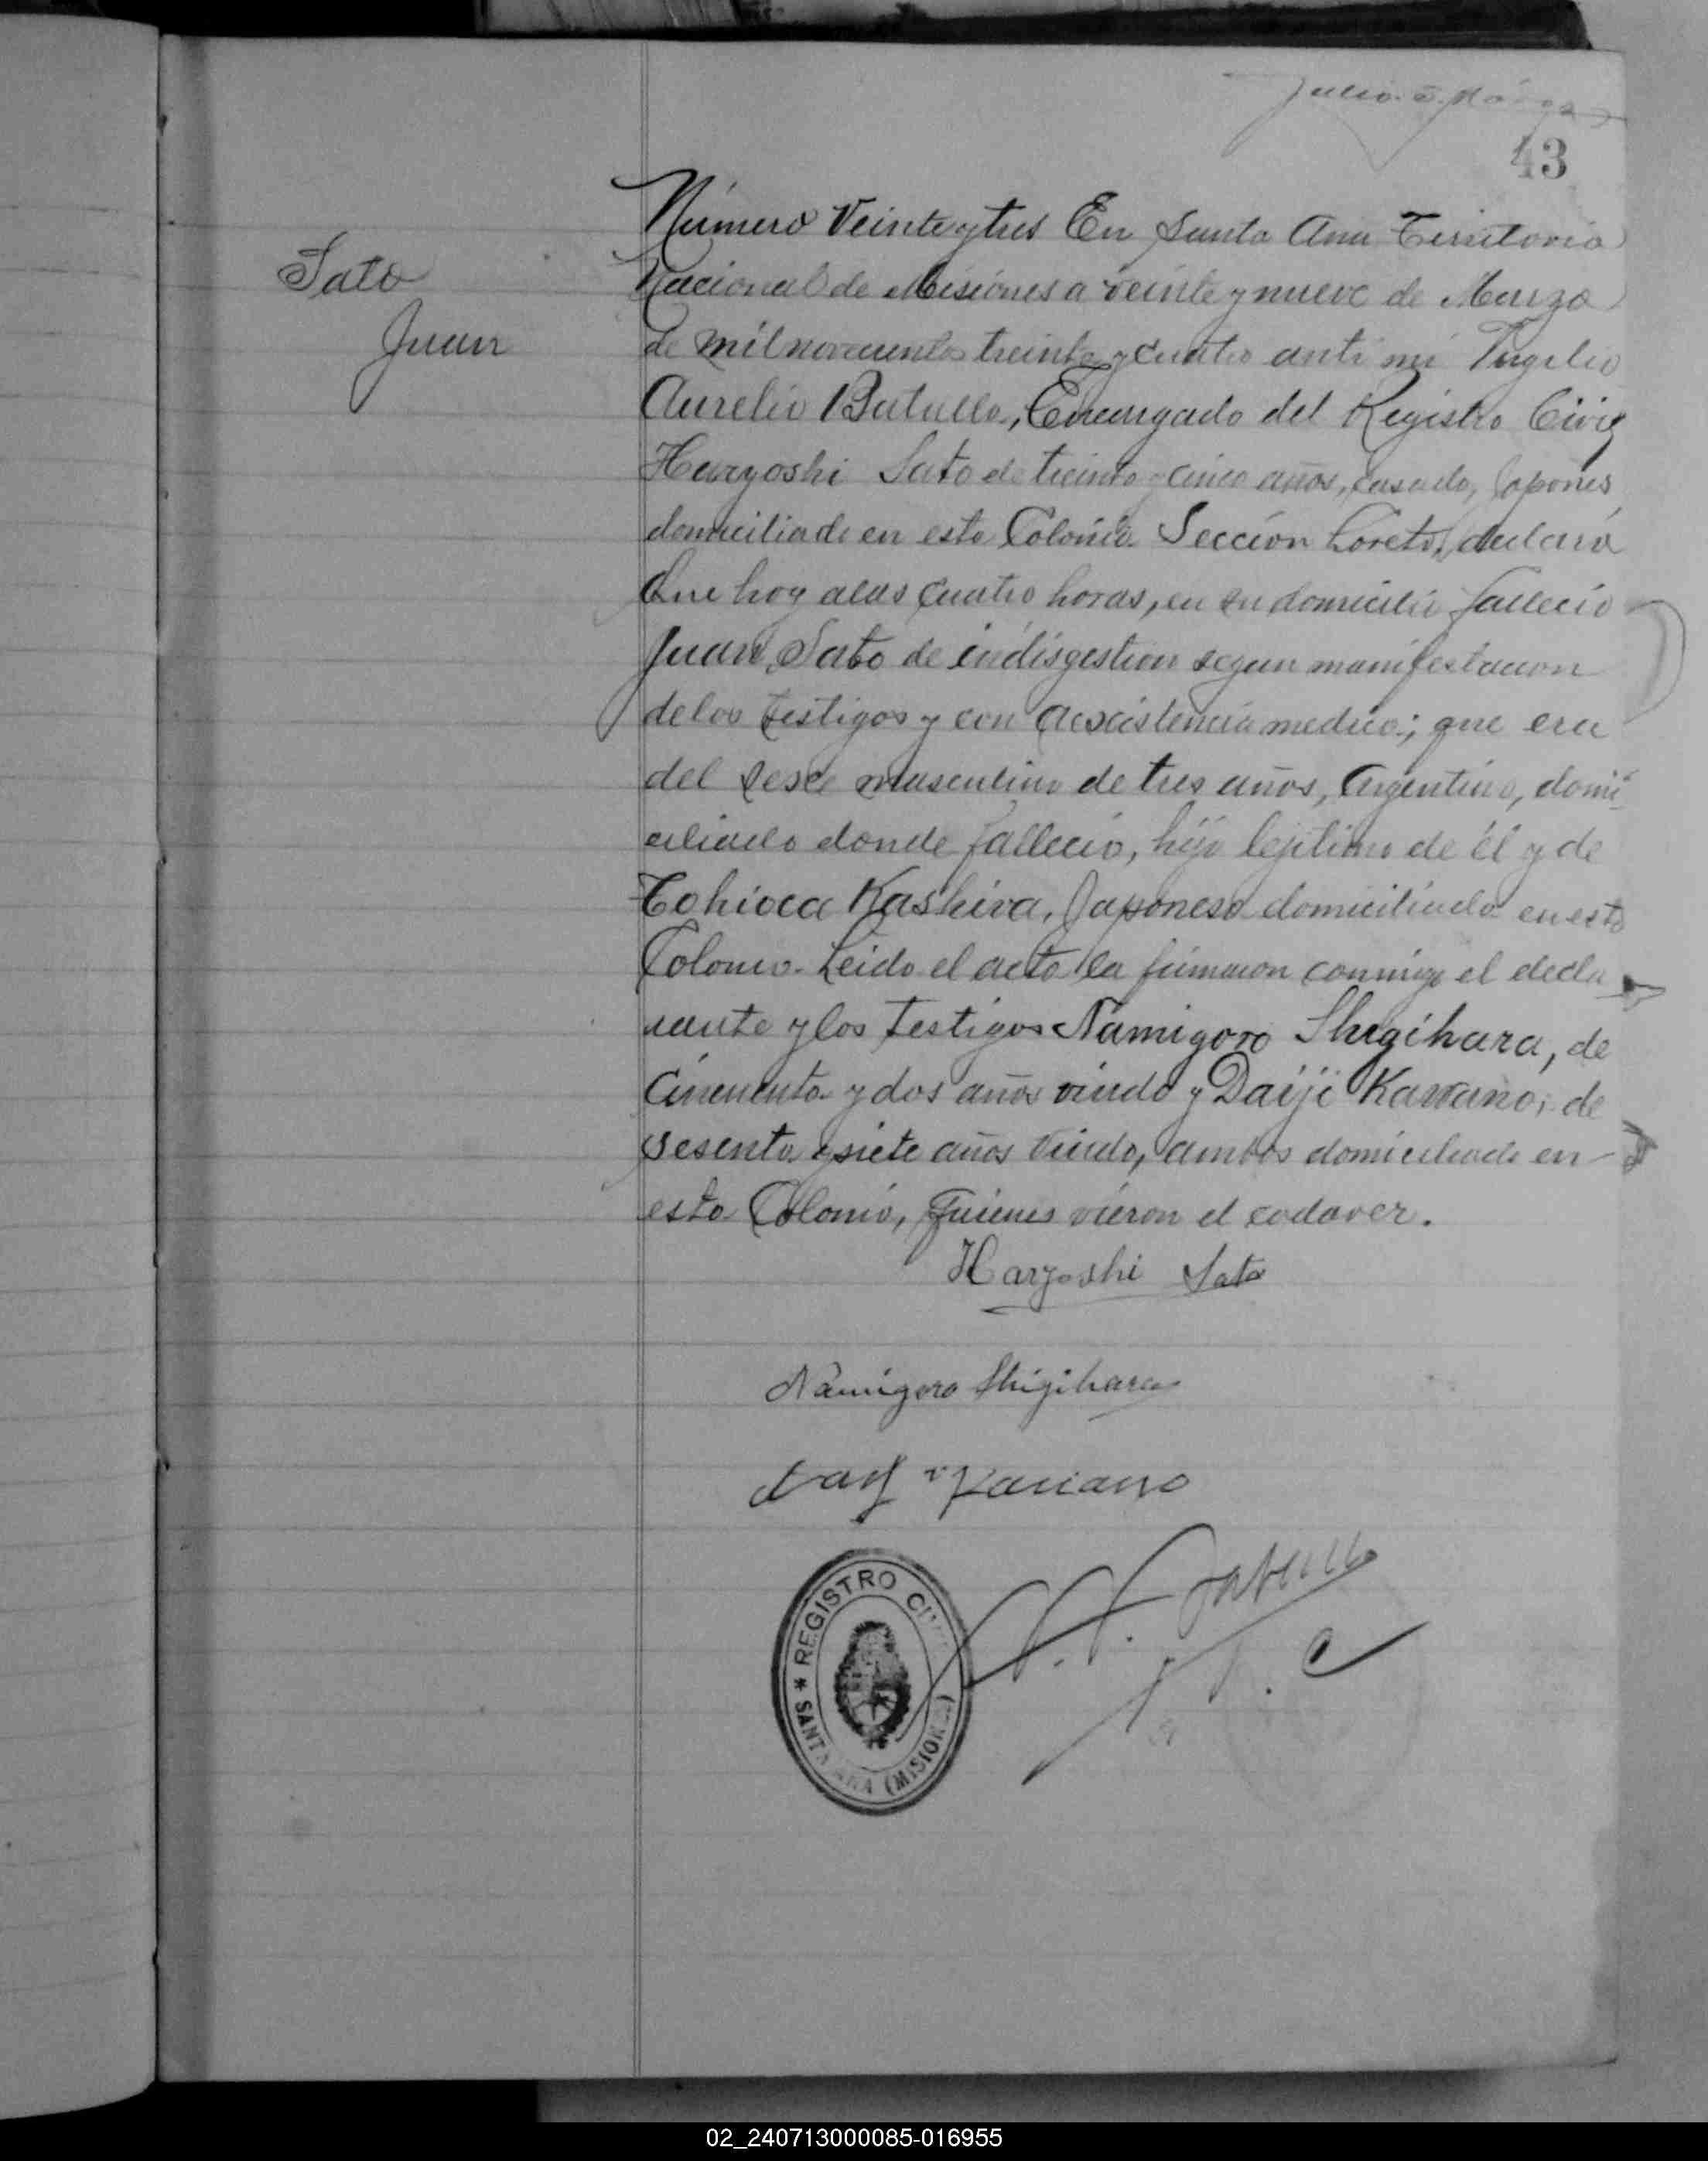 43
Sato
Juan
Número Veinte y tres En Santa Ana Territorio
Nacional de Misiones a veinte y nueve de Marzo
de mil novecientos treinta y cuatro anti mi Virgilio
Aurelio Batullo, Encargado del Registro Civil
Haryoshi Sato de treinta y cinco años, casado, Japonés
domiciliado en esta Colonia Sección Loreto, declaró
Que hoy a las cuatro horas, en su domicilio falleció
Juan Sato de indisgestion segun manifestacion
de los testigos y con acxistencia medica; que era
del sexo masculino de tres años, Argentino, domi-
ciliado donde falleció, hijo lejitimo de él y de
Tohioca Kashiva, Japonesa domiciliada en esta
Colonia. Leido el acta la firmaron conmigo el decla
rante y los testigos Namigoro Shigihara, de
Cincuenta y dos años viudo y Daiji Kawano, de
sesenta y siete años viudo, ambos domiciliado en
esta Colonia, quienes vieron el cadaver.
Haryoshi Sato
Namigoro Shigihara
Kawano
REGISTRO CIVIL
* SANTA ANA (MISIONES)
02_240713000085-016955